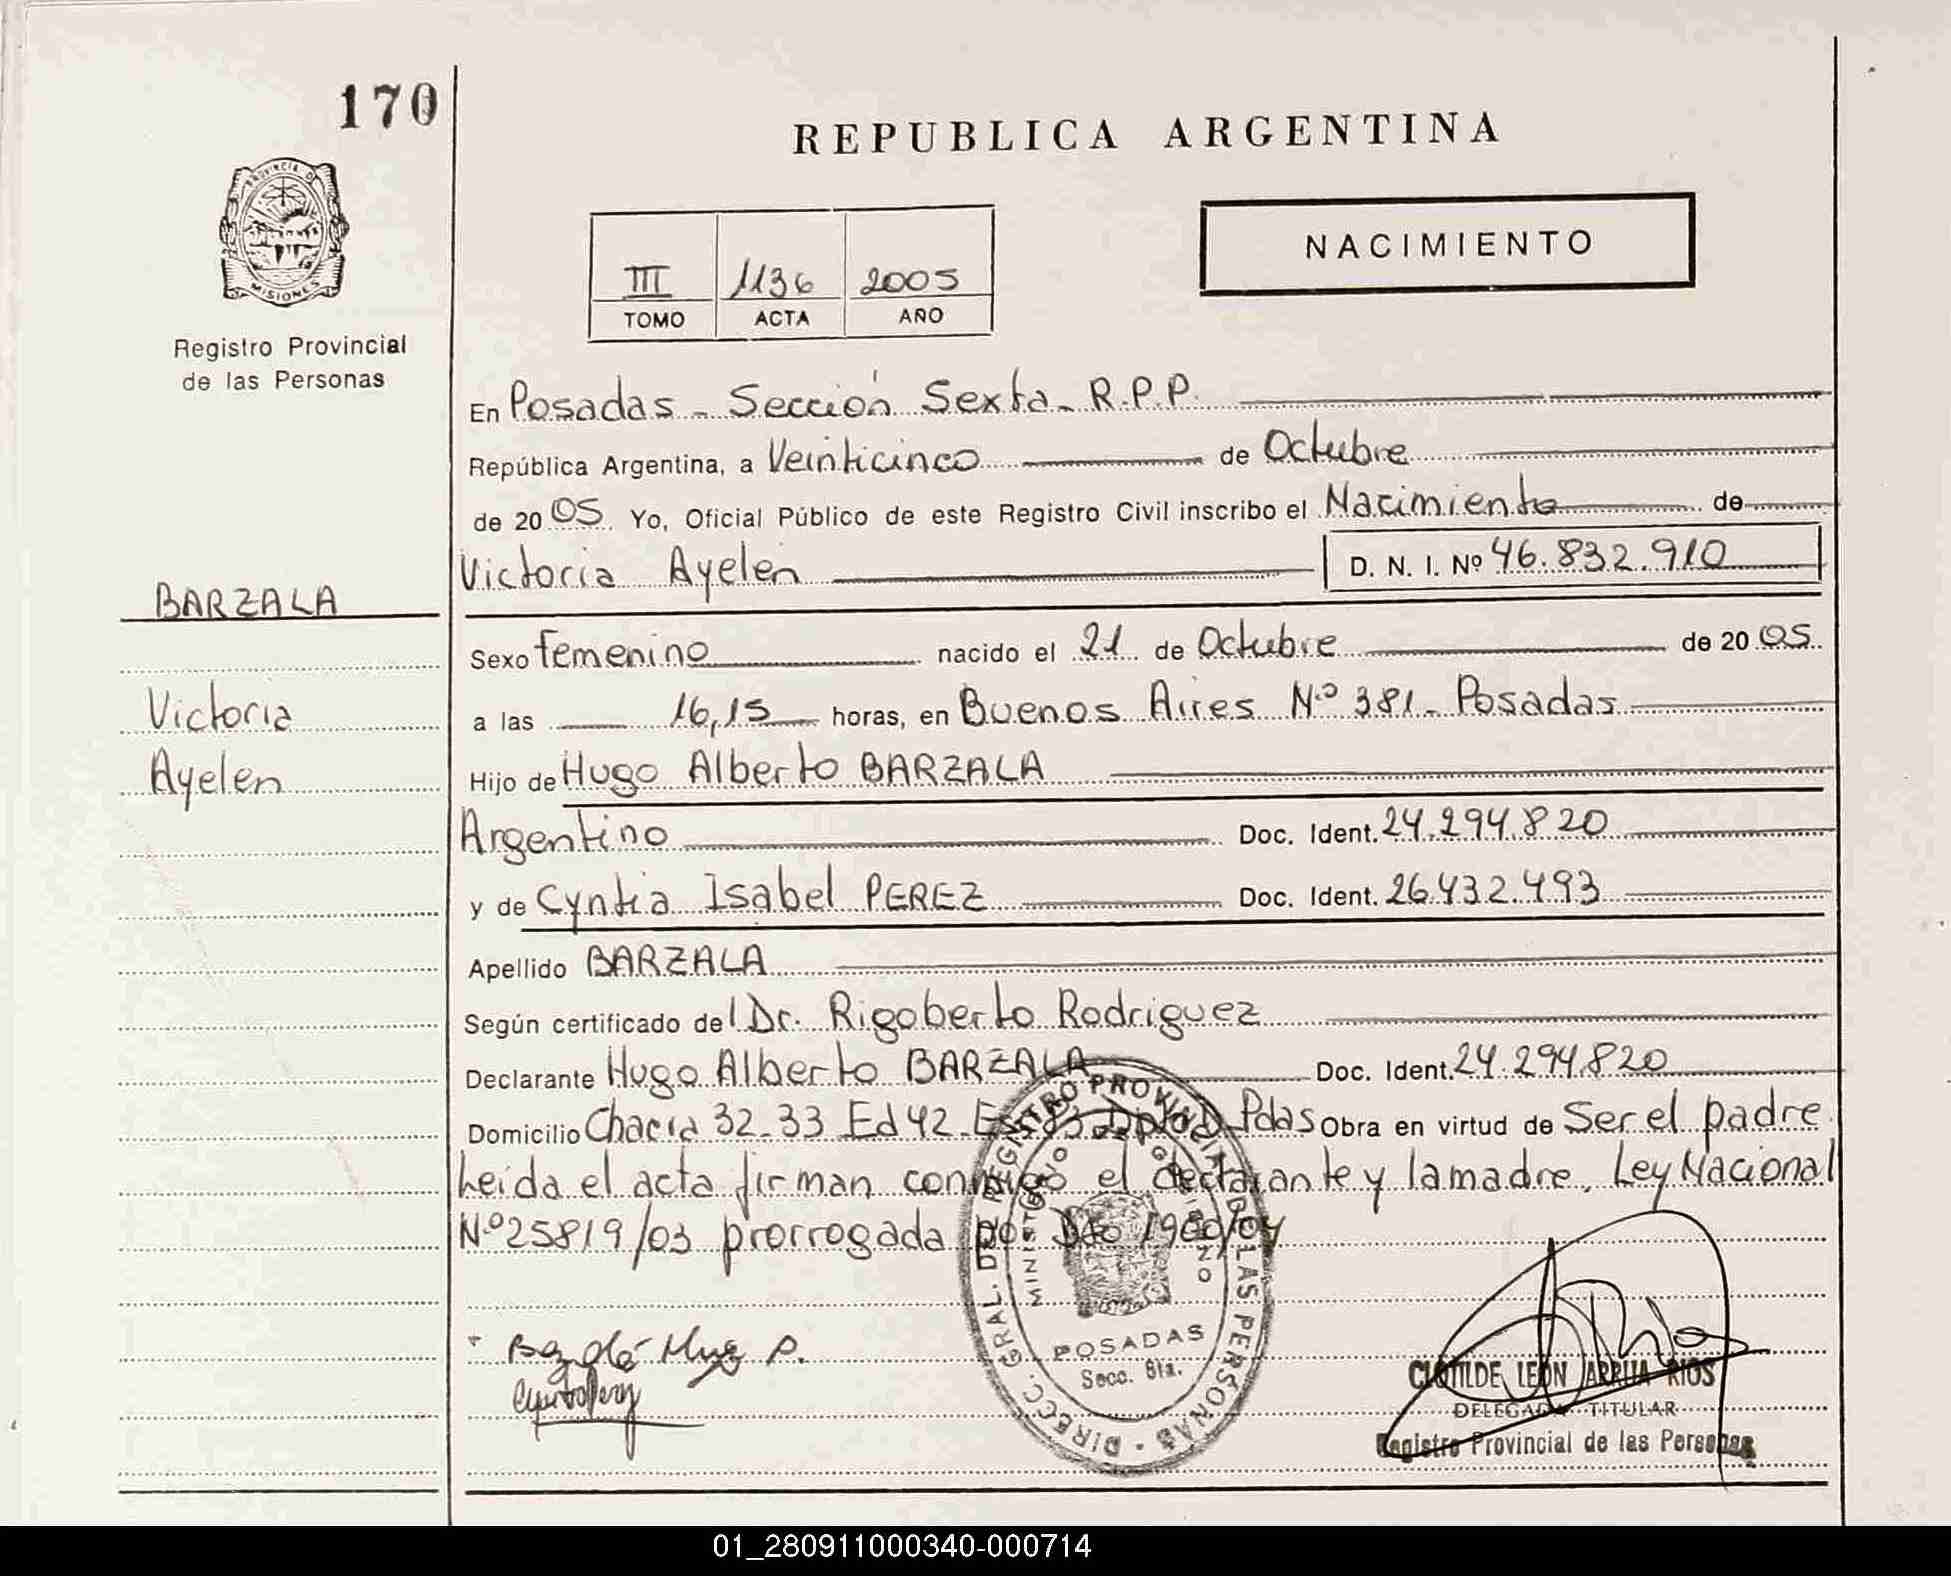 170
REPUBLICA ARGENTINA
PROVINCIA D
MISIONES
NACIMIENTO
III 1136 2005
TOMO ACTA AÑO
Registro Provincial
de las Personas
En Posadas - Sección Sexta - R.P.P.
República Argentina, a Veinticinco de Octubre
de 2005 Yo, Oficial Público de este Registro Civil inscribo el Nacimiento de
Victoria Ayelen D. N. I. Nº 46.832.910
BARZALA
Sexo femenino nacido el 21 de Octubre de 2005
Victoria
a las 16,15 horas, en Buenos Aires Nº 381 - Posadas
Ayelen
Hijo de Hugo Alberto BARZALA
Argentino Doc. Ident. 24.294.820
y de Cyntia Isabel PEREZ Doc. Ident. 26.432.493
Apellido BARZALA
Según certificado del Dr. Rigoberto Rodriguez
Declarante Hugo Alberto BARZALA Doc. Ident. 24.294.820
Domicilio Chacra 32-33 Ed 42 Pdas Obra en virtud de Ser el padre
Leida el acta firman conmigo el declarante y la madre. Ley Nacional
Nº 25819/03 prorrogada por Dto 1900/04
DIRECC. GRAL. DE REGISTRO PROVINCIAL DE LAS PERSONAS
MINISTERIO GOBIERNO
POSADAS
Secc. 6ta.
CLOTILDE LEON ARRUA RIOS
DELEGADA TITULAR
Registro Provincial de las Personas
01_280911000340-000714